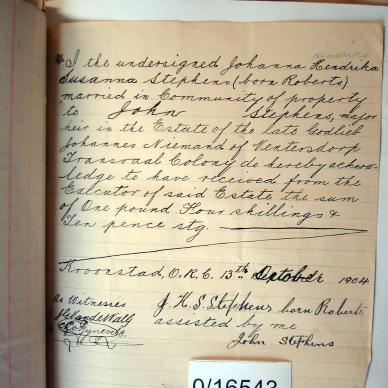 I the undersigned Johanna Hendrika
Susanna Stephens (born Roberts)
married in Community of property
to John Stephens, major
heir in the Estate of the late Godlieb
Johannes Niemand of Ventersdorp
Transvaal Colony do hereby acknow-
ledge to have received from the
Executor of said Estate the sum
of One pound Four shillings &
Ten pence stg.
Kroonstad, O.R.C. 13th October 1904
As Witnesses
J. H. S. Stephens born Roberts
assisted by me
John Stephens
0/16543